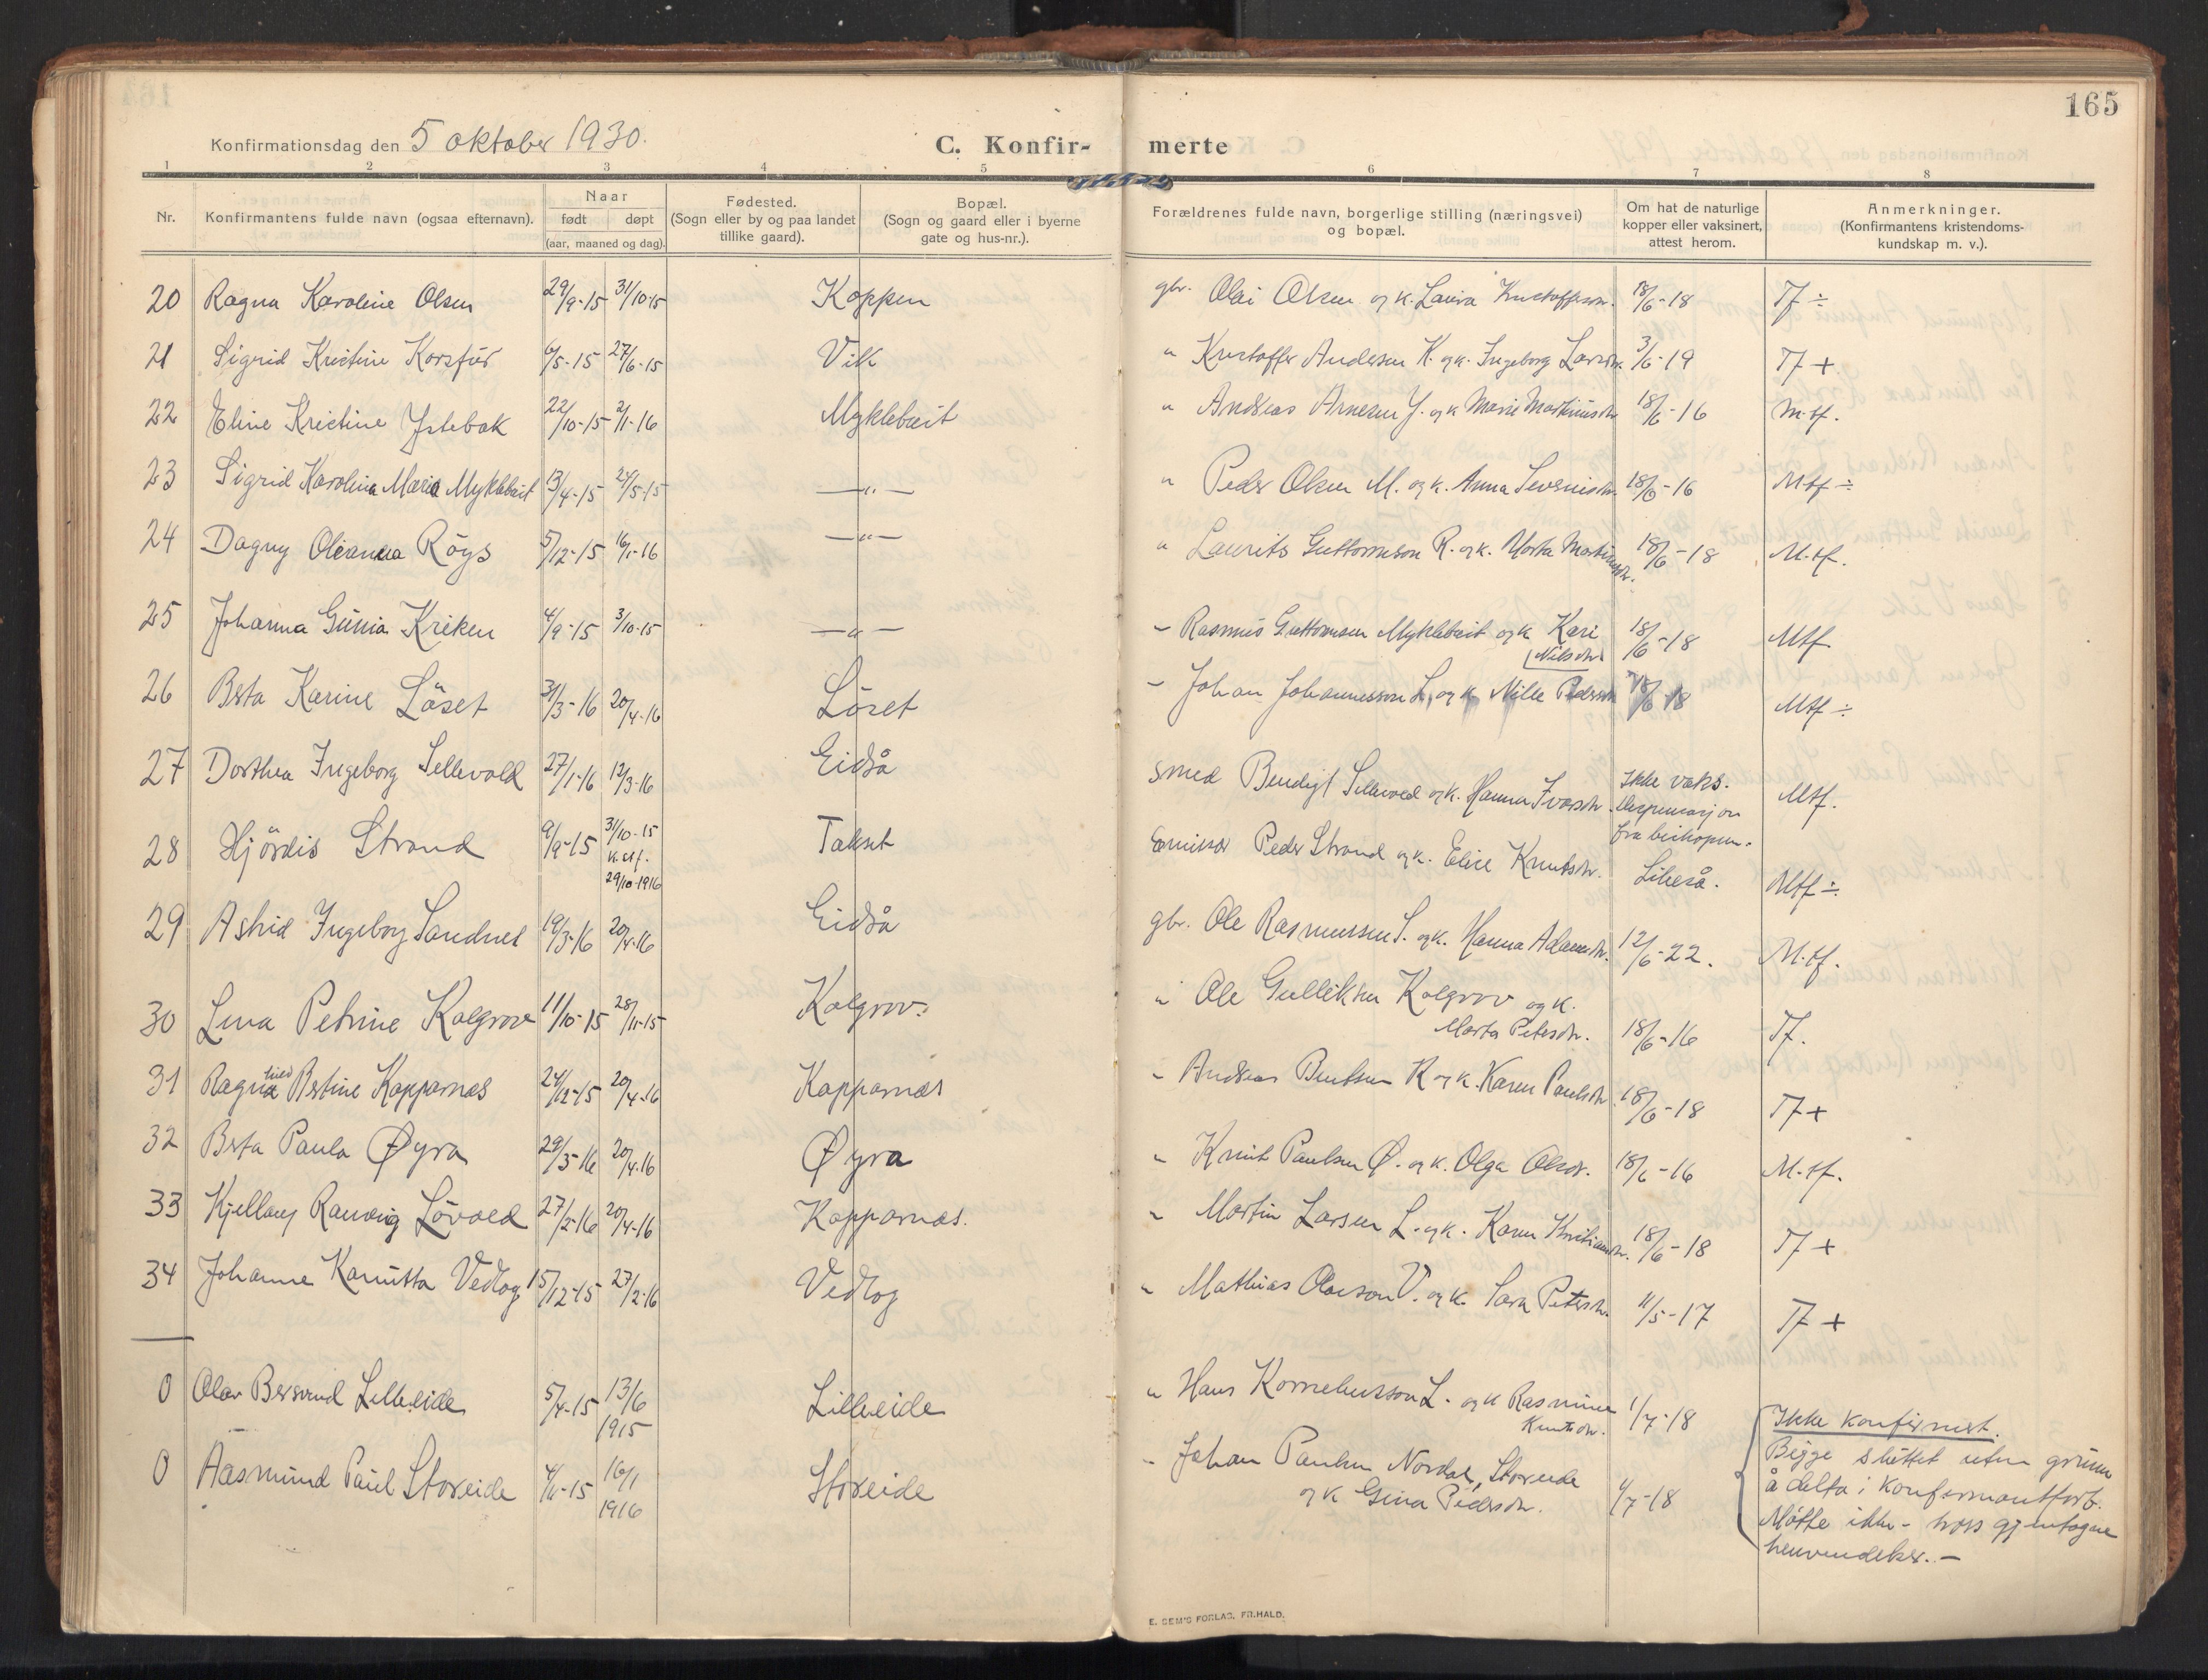 165
Konfirmationsdag den 5 oktober 1930.
C. Konfir- merte
1 2 3 4 5 6 7 8
Nr. Konfirmantens fulde navn (ogsaa efternavn). Naar født døpt (aar, maaned og dag). Fødested. (Sogn eller by og paa landet tillike gaard). Bopæl. (Sogn og gaard eller i byerne gate og hus-nr.). Forældrenes fulde navn, borgerlige stilling (næringsvei) og bopæl. Om hat de naturlige kopper eller vaksinert, attest herom. Anmerkninger. (Konfirmantens kristendoms- kundskap m. v.).
20 Ragna Karoline Olsen 29/9-15 31/10-15 Koppen gbr. Olai Olsen og k. Laura Kristoffersdr. 18/6-18 Tf ÷
21 Sigrid Kristine Korsfur 6/5-15 27/6-15 Vik " Kristoffer Andersen K. og k. Ingeborg Larsdr. 3/6-19 Tf +
22 Eline Kristine Ystebok 22/10-15 2/1-16 Myklebust " Andreas Arnesen Y. og k Marie Martinusdr. 18/6-16 M-tf.
23 Sigrid Karolina Maria Myklebust 13/4-15 24/5-15 —"— " Peder Olsen M. og k. Anna Severinsdr. 18/6-16 Mtf ÷
24 Dagny Oleanna Röys 5/12-15 16/1-16 —"— " Laurits Guttormson R. og k. Marta Martinusdr. 18/6-18 M-tf.
25 Johanna Gunia Kriken 4/9-15 3/10-15 —"— " Rasmus Guttormsen Myklebust og k Kari Nilsdr. 18/6-18 Mtf
26 Berta Karine Löset 31/3-16 20/4-16 Löset " Johan Johannesson L. og k Nille Pedersdr. 18/6-18 Mtf ÷
27 Dorthea Ingeborg Sellevold 27/1-16 12/3-16 Eidså Smed Bendigt Sellevold og k. Hanna Ivarsdr. Ikke vaks. Dispensasjon fra biskopen. Mtf.
28 Hjördis Strand 9/9-15 31/10-15 k. clf. 29/10-1916 Takset Emissær Peder Strand og k. Elise Knutsdr. Likeså. Mtf ÷
29 Astrid Ingeborg Sandnes 19/3-16 20/4-16 Eidså gbr. Ole Rasmussen S. og k. Hanna Adamsdr. 12/6-22. M-tf.
30 Lina Petrine Kolgrov 11/10-15 28/11-15 Kolgrov. " Ole Gulliksen Kolgrov og k. Marta Petersdr. 18/6-16 Tf.
31 Ragnhild Bertine Kopparnes 24/12-15 20/4-16 Kopparnes " Andreas Bentsen K og k. Karen Paulsdr. 18/6-18 Tf +
32 Berta Paula Øyra 29/3-16 20/4-16 Øyra " Knut Paulsen Ø. og k. Olga Olsdr. 18/6-16 M-tf.
33 Kjellaug Ranveig Lövold 27/2-16 20/4-16 Kopparnes. " Martin Larsen L. og k. Karen Kristiansdr. 18/6-18 Tf +
34 Johanne Kamitta Vedlog 15/12-15 27/2-16 Vedlog " Mathias Olaeson V. og k. Sara Petersdr. 11/5-17 Tf +
0 Olav Bersvend Lilleeide 5/4-15 13/6 1915 Lilleeide " Hans Korneliusson L. og k Rasmine Knutsdr. 1/7-18
0 Aasmund Paul Storeide 4/11-15 16/1 1916 Storeide " Johan Paulsen Nordal, Storeide og k Gina Pedersdr. 1/7-18
Ikke konfirmert.
Begge sluttet uten grunn
å delta i konfirmantforb.
Møtte ikke - tross gjentagne
henvendelser. —
E. SEM'S FORLAG, FR.HALD.